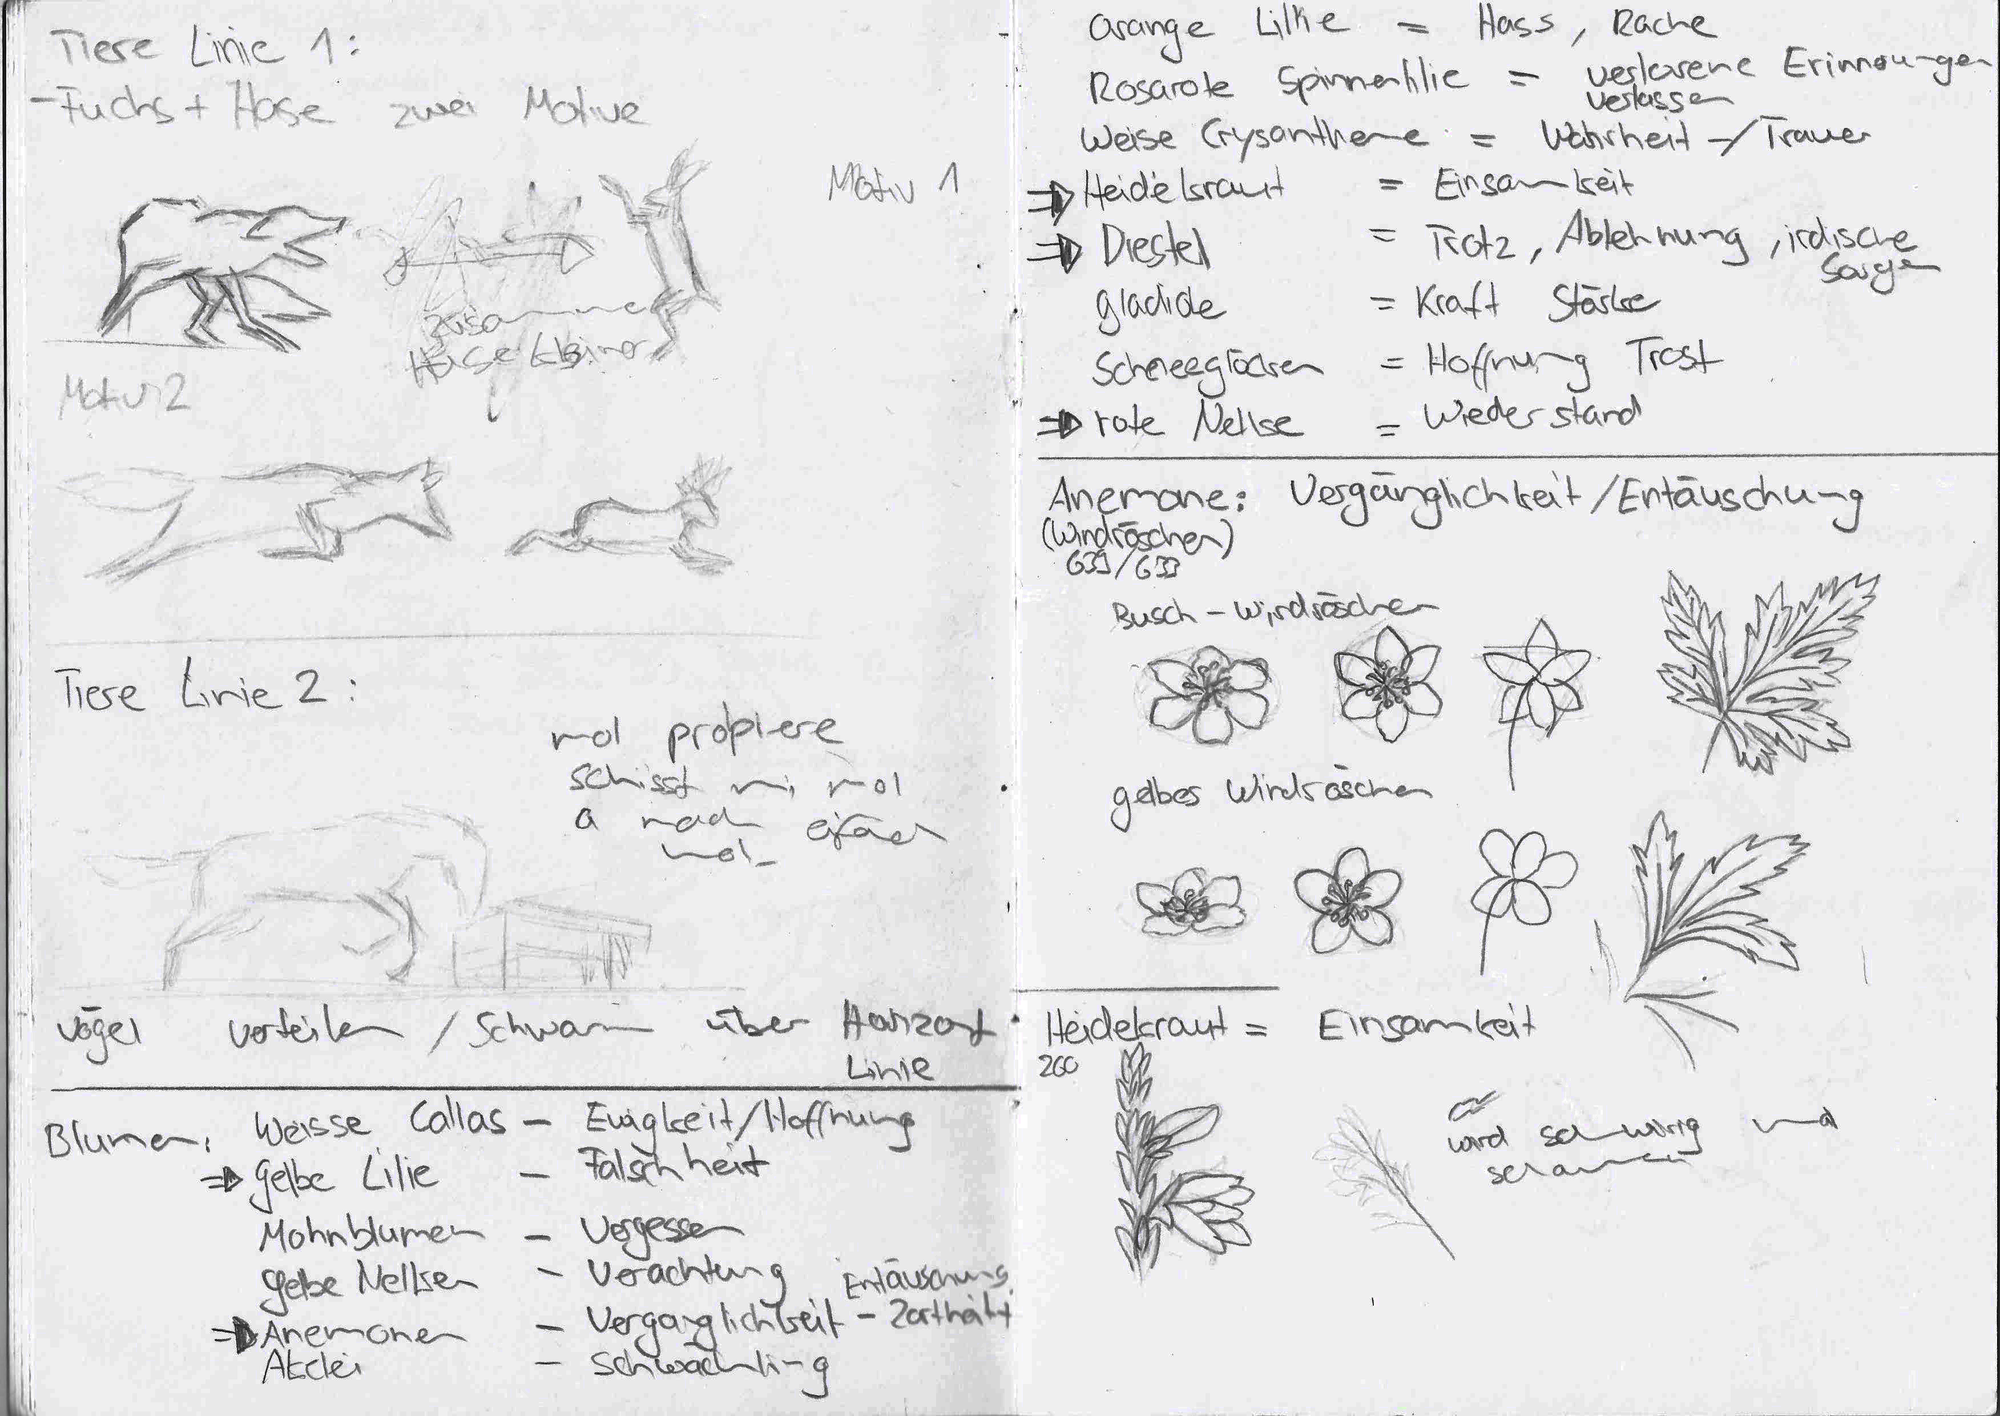 Tiere Linie 1:
- Fuchs + Hase zwei Motive
Motiv 1
zusamme
Hase kleiner
Motiv 2
Tiere Linie 2:
mol probiere
schisst mi mol
a mach eifach
mol
Vögel verteilen / Schwarm über Horizont
Linie
Blumen: Weisse Callas - Ewigkeit/Hoffnung
⇒ gelbe Lilie - Falschheit
Mohnblumen - Vergessen
gelbe Nelken - Verachtung Entäuschung
⇒ Anemonen - Vergänglichkeit - Zartheit
Aklei - Schwächling
Orange Lilie = Hass, Rache
Rosarote Spinnenlilie = verlorene Erinnerungen
verlassen
Weise Crysantheme = Wahrheit -/Trauer
⇒ Heidekraut = Einsamkeit
⇒ Diestel = Trotz, Ablehnung, irdische
Sorgen
gladiole = Kraft Stärke
Schneeglöcken = Hoffnung Trost
⇒ rote Nelke = Wiederstand
Anemone: Vergänglichkeit/Entäuschung
(Windröschen)
Busch-windröschen
gelbes Windröschen
Heidekraut = Einsamkeit
260
wird schwirig mol
schauen